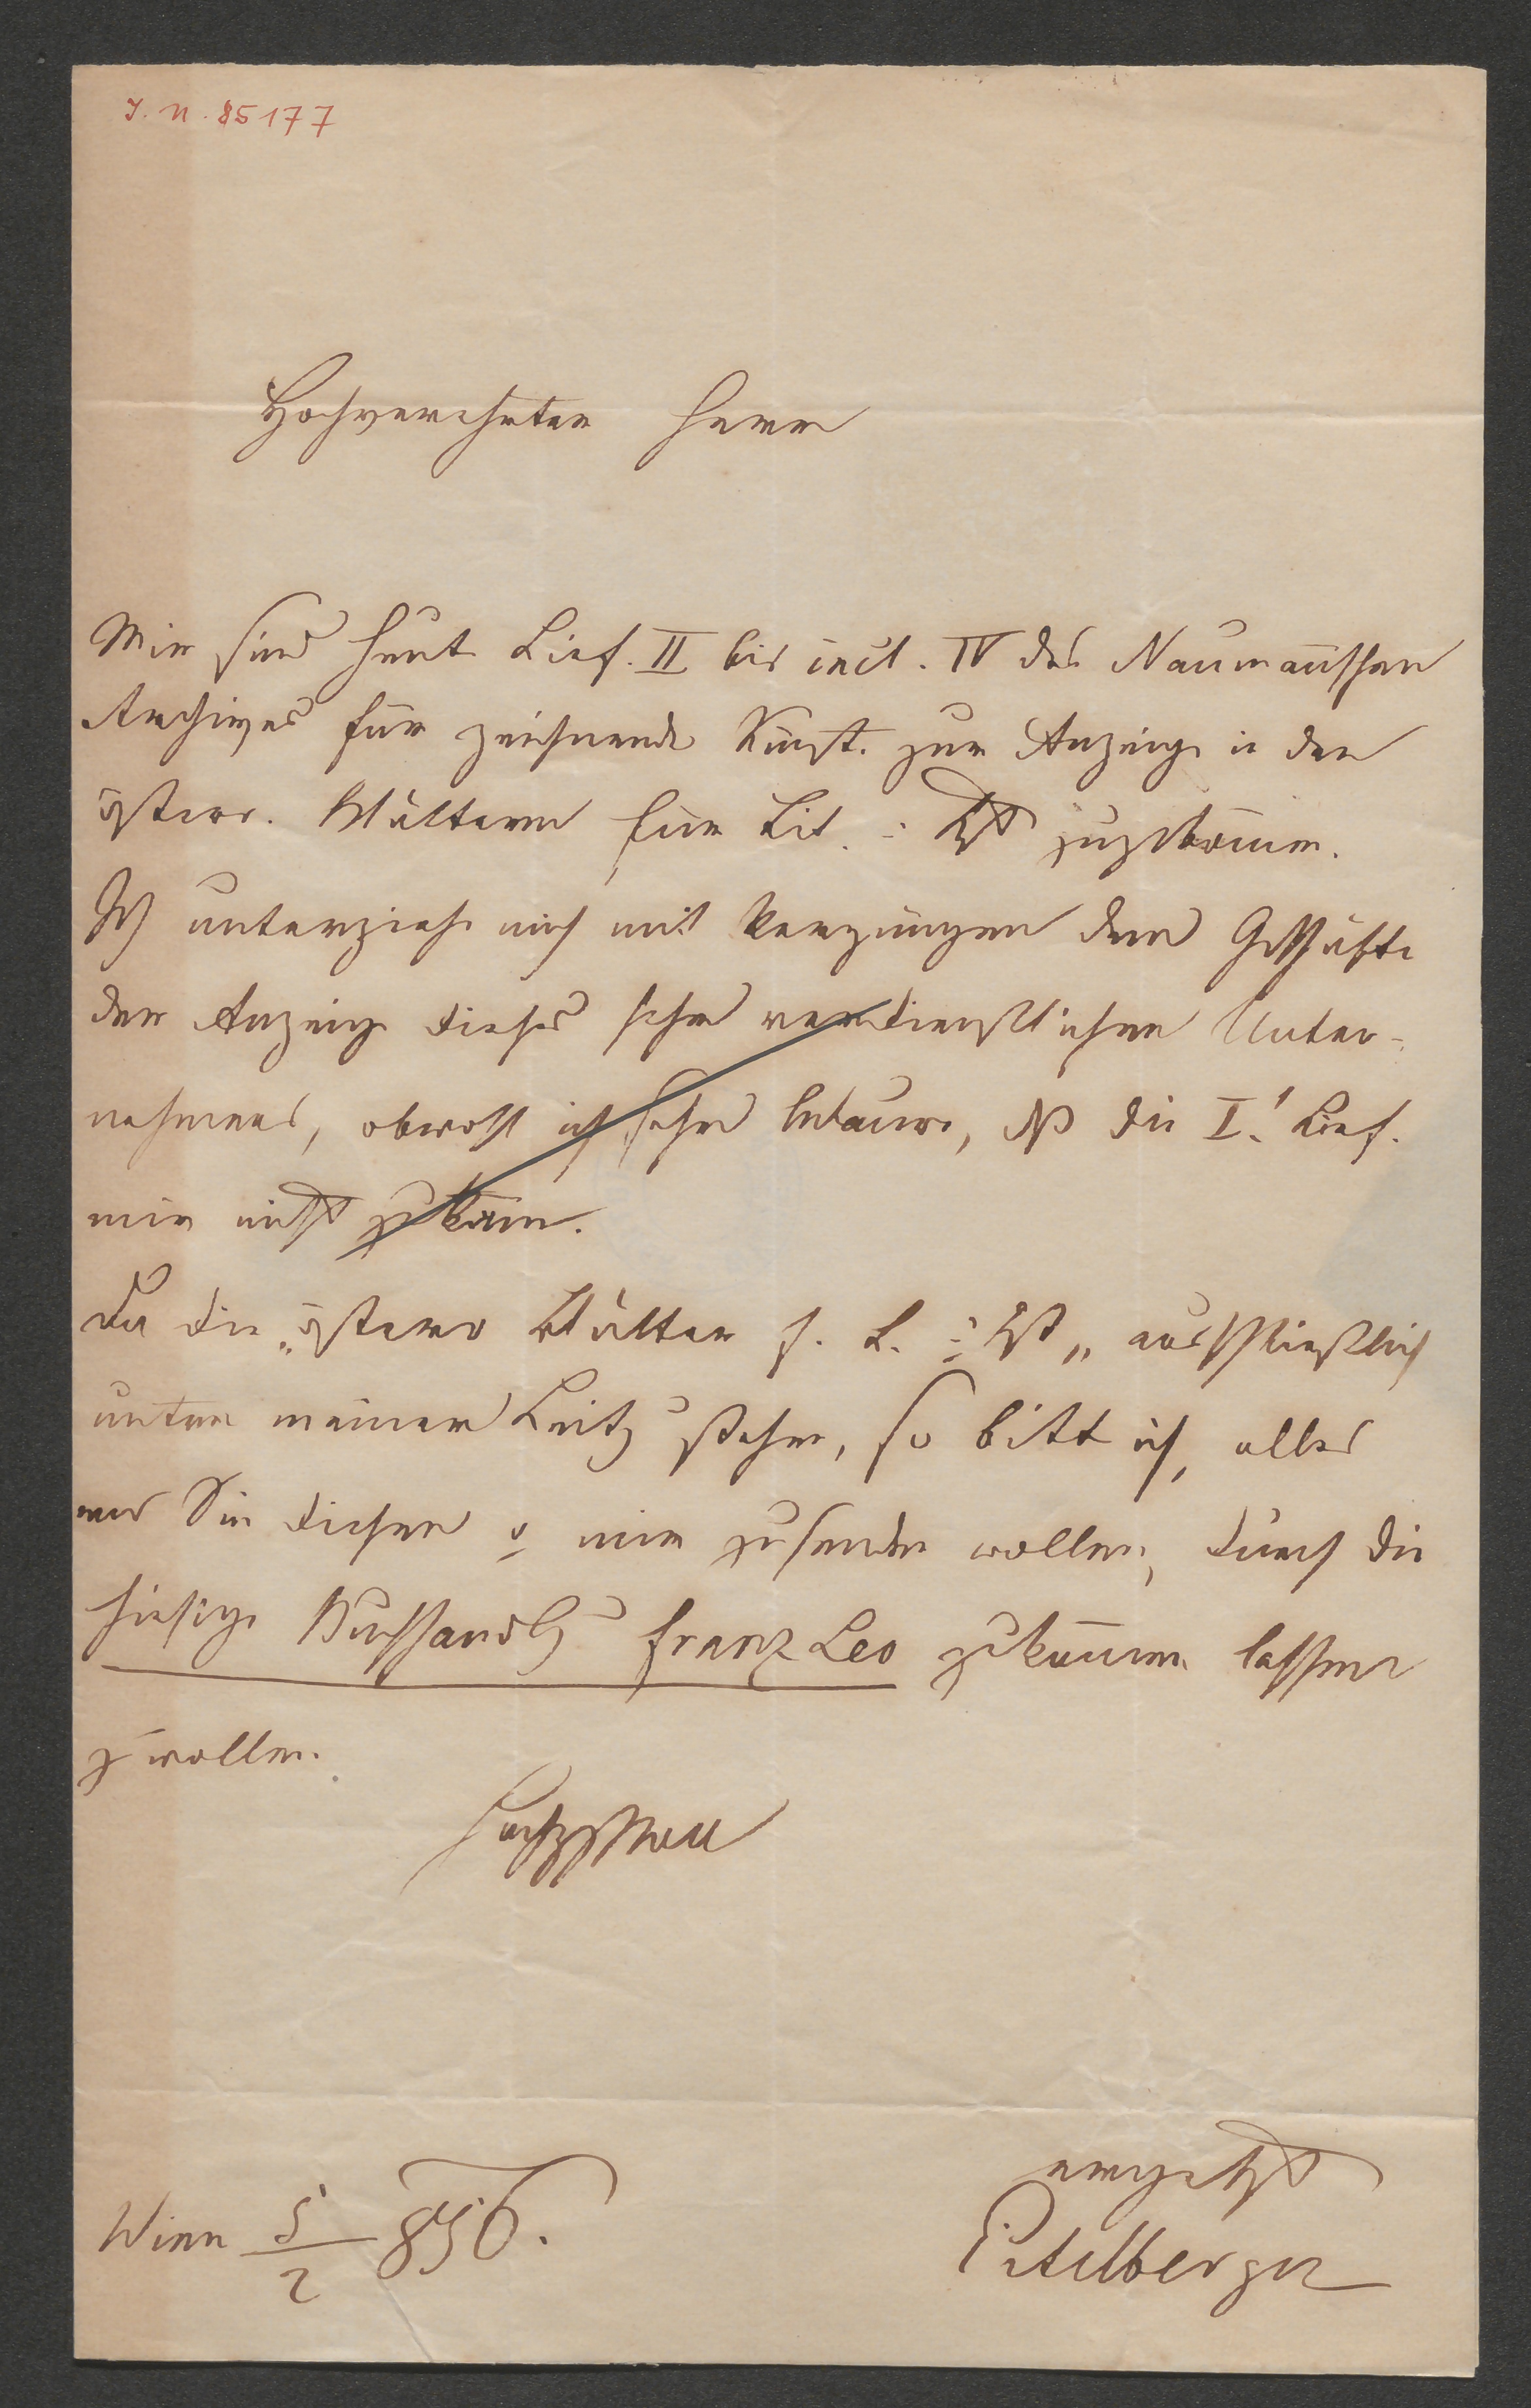 I. N. 85177
Hochverehrter Herr
Mir sind heute Lief. II bis incl. IV des Naumannschen
Archives für zeichnende Kunst zur Anzeige in den
österr. Blättern für Lit. u. Kst zugekommen.
Ich unterziehe mich mit Vergnügen dem Geschäfte
der Anzeige dieses sehr verdienstlichen Unter-
nehmens, obwohl ich sehr bedaure, daß die I. Lief.
mir nicht zukam.
Da die „österr Blätter f. L. u. Kst" ausschließlich
unter meiner Leitg stehen, so bitte ich, alles
was Sie diesen o mir zusenden wollen, durch die
hiesige Buchhandlg Franz Leo zukommen lassen
z wollen.
Hochachtungsvoll
ergebenst
Wien 5/2 856.
Eitelberger